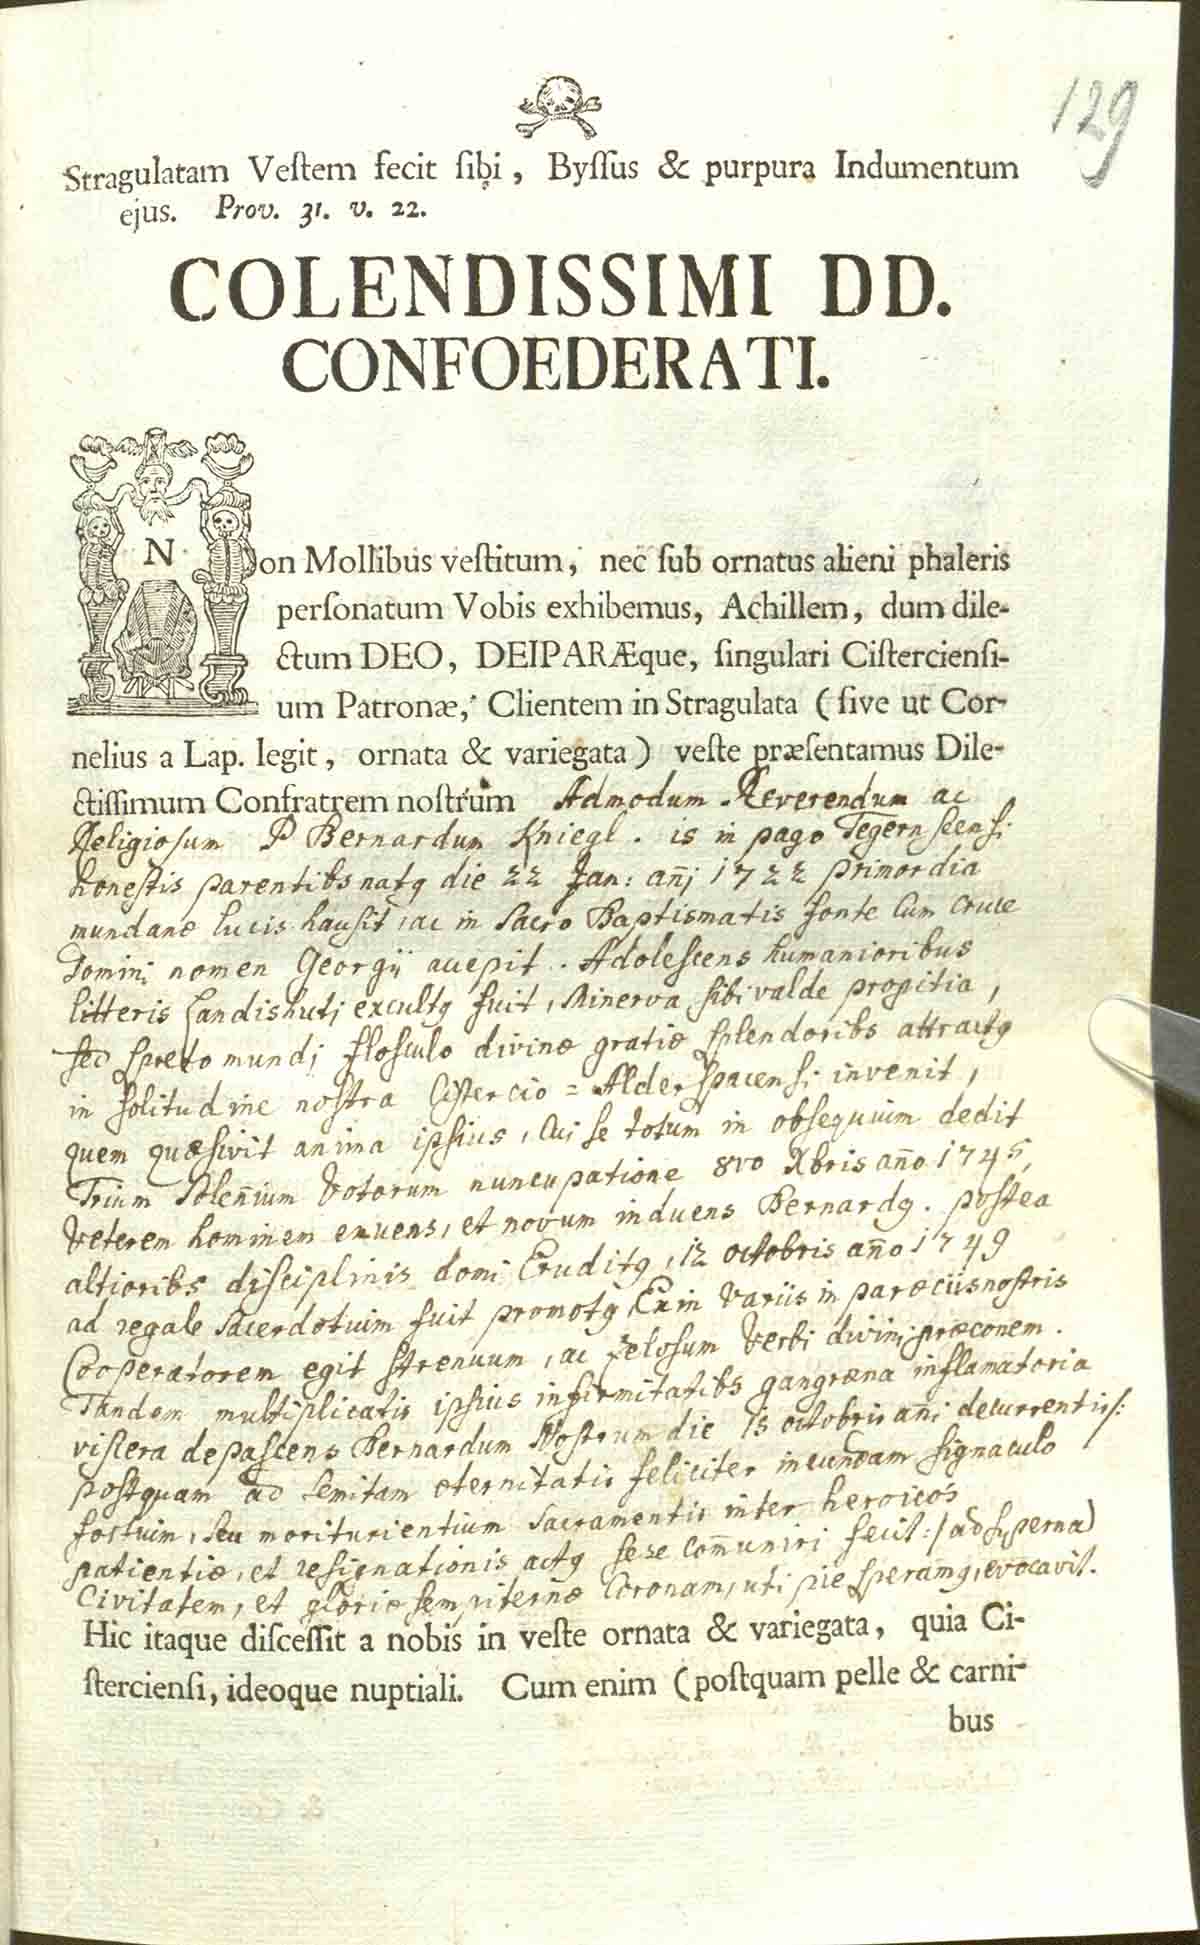 129
Stragulatam Veſtem fecit ſibi, Byſſus & purpura Indumentum
ejus. Prov. 31. v. 22.
COLENDISSIMI DD.
CONFOEDERATI.
Non Mollibus veſtitum, nec ſub ornatus alieni phaleris
perſonatum Vobis exhibemus, Achillem, dum dile-
ctum DEO, DEIPARÆque, ſingulari Ciſtercienſi-
um Patronæ, Clientem in Stragulata (ſive ut Cor-
nelius a Lap. legit, ornata & variegata) veſte præſentamus Dile-
ctiſſimum Confratrem noſtrum Admodum Reverendum ac
Religiosum P Bernardum Kniegl. is in pago Tegernseensi
honestis parentibs natq die 22 Jan: anj 1722 primordia
mundanæ lucis hausit, ac in Sacro Baptismatis fonte Cum cruce
Domini nomen Georgij accepit. Adolescens humanioribus
litteris Landishuti excultq fuit, Minerva sibi valde propitia,
sed spreto mundi flosculo divinæ gratiæ splendoribs attractq
in solitudine nostra Cistercio = Alderspacensi invenit,
quem quæsivit anima ipsius, Cui se totum in obsequium dedit
Trium Solenium Votorum nuncupatione 8vo Xbris año 1745,
Veterem hominem exuens, et novum induens Bernardq. postea
altioribs disciplinis domi Eruditq, 12 octobris año 1749
ad regale Sacerdotium fuit promotq Exin Variis in paræciis nostris
Cooperatorem egit strenuum, ac zelosum Verbi divini præconem.
Tandem multiplicatis ipsius infirmitatibs gangræna inflamatoria
viscera depascens Bernardum Nostrum die 15 octobris ani decurrentis /:
postquam ad semitam æternitatis feliciter ineundam signaculo
fortium, seu moriturientium Sacramentis inter heroicos
patientiæ, et resignationis actq sese comuniri fecit :/ ad superna
Civitatem, et gloriæ sempiternæ Coronam, uti pie speramq, evocavit.
Hic itaque diſceſſit a nobis in veſte ornata & variegata, quia Ci-
ſtercienſi, ideoque nuptiali. Cum enim (poſtquam pelle & carni-
bus